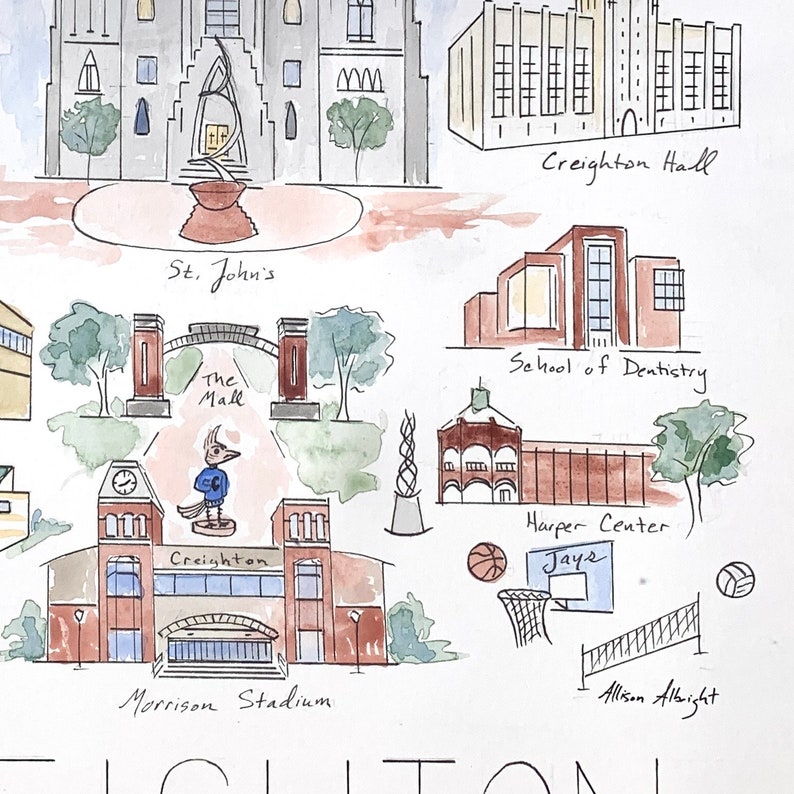 Creighton Hall
St. John's
School of Dentistry
The
Mall
C
Harper Center
Creighton
Jays
Morrison Stadium
Allison Albright
IGHTON